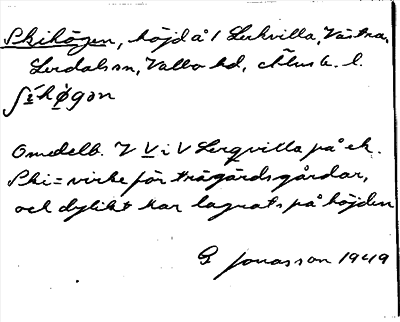 Skihögen, höjd å 1 Lukvilla, Västra
Lerdalson, Valbo hd, Älvsb. l.
ʃi̱hø̱gən
Omedelb. V V i V Lerqvilla på ek.
Ski = virke för trägärdsgårdar,
och dylikt har lagrats på höjden
G Jonasson 1949